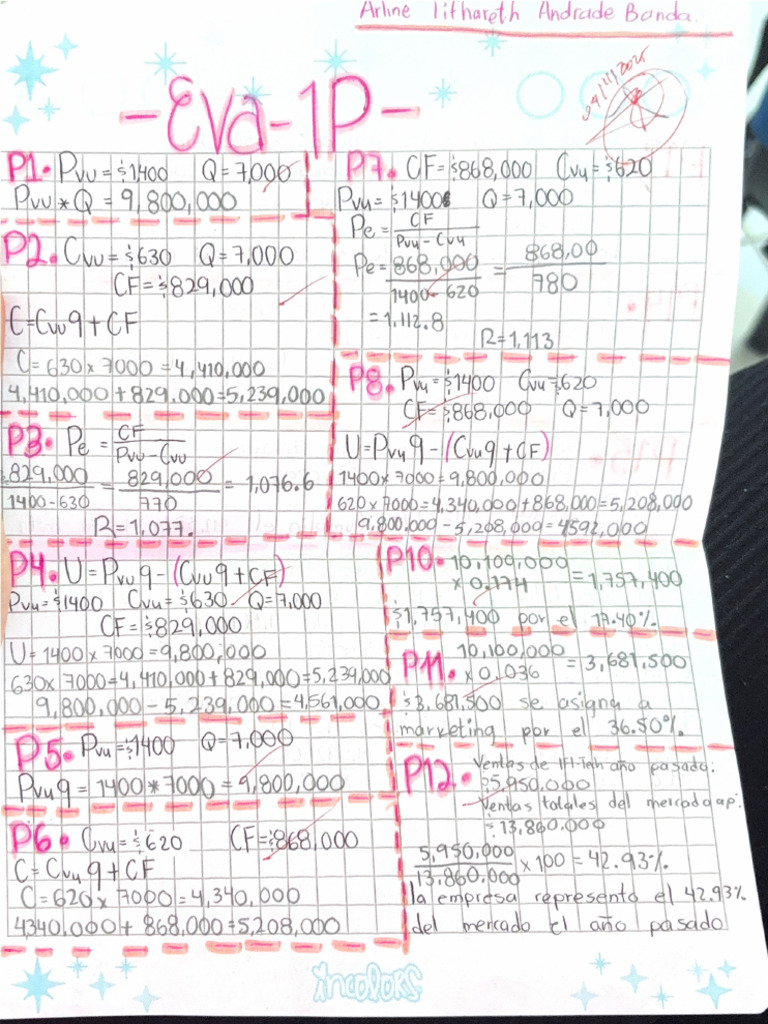 Arline Iithareth Andrade Banda.
04/11/2025
-Eva-1P-
P1. Pvu=$1400 Q=7,000
Pvu*Q = 9,800,000
P2. Cvu=$630 Q=7,000
CF=$829,000
C=Cvu q+CF
C=630x7000=4,410,000
4,410,000+829.000=5,239,000
P3. Pe= CF
Pvu-Cvu
829,000 = 829,000 = 1,076.6
1400-630 770
R=1,077.
P4. U=Pvu q-(Cvu q+CF)
Pvu=$1400 Cvu=$630 Q=7,000
CF=$829,000
U=1400x7000=9,800,000
630x7000=4,410,000+829,000=5,239,000
9,800,000-5,239,000=4,561,000
P5. Pvu=$1400 Q=7,000
Pvu q=1400*7000=9,800,000
P6. Cvu=$620 CF=$868,000
C=Cvu q+CF
C=620x7000=4,340,000
4340,000+868,000=5,208,000
P7. CF=$868,000 Cvu=$620
Pvu=$1400 Q=7,000
Pe= CF
Pvu-Cvu
Pe=868,000 = 868,00
1400-620 780
=1,112.8
R=1,113
P8. Pvu=$1400 Cvu=$620
CF=$868,000 Q=7,000
U=Pvu q-(Cvu q+CF)
1400x7000=9,800,000
620x7000=4,340,000+868,000=5,208,000
9,800,000-5,208,000=4592,000
P10. 10,100,000
x 0.174 =1,757,400
$1,757,400 por el 17.40%.
P11. 10,100,000
x 0.036 =3,681,500
$3,681,500 se asigna a
marketing por el 36.50%.
P12. Ventas de año pasado:
$5,950,000
Ventas totales del mercado ap:
$13,860,000
5,950,000 x100=42.93%
13,860,000
la empresa represento el 42.93%
del mercado el año pasado
incolors